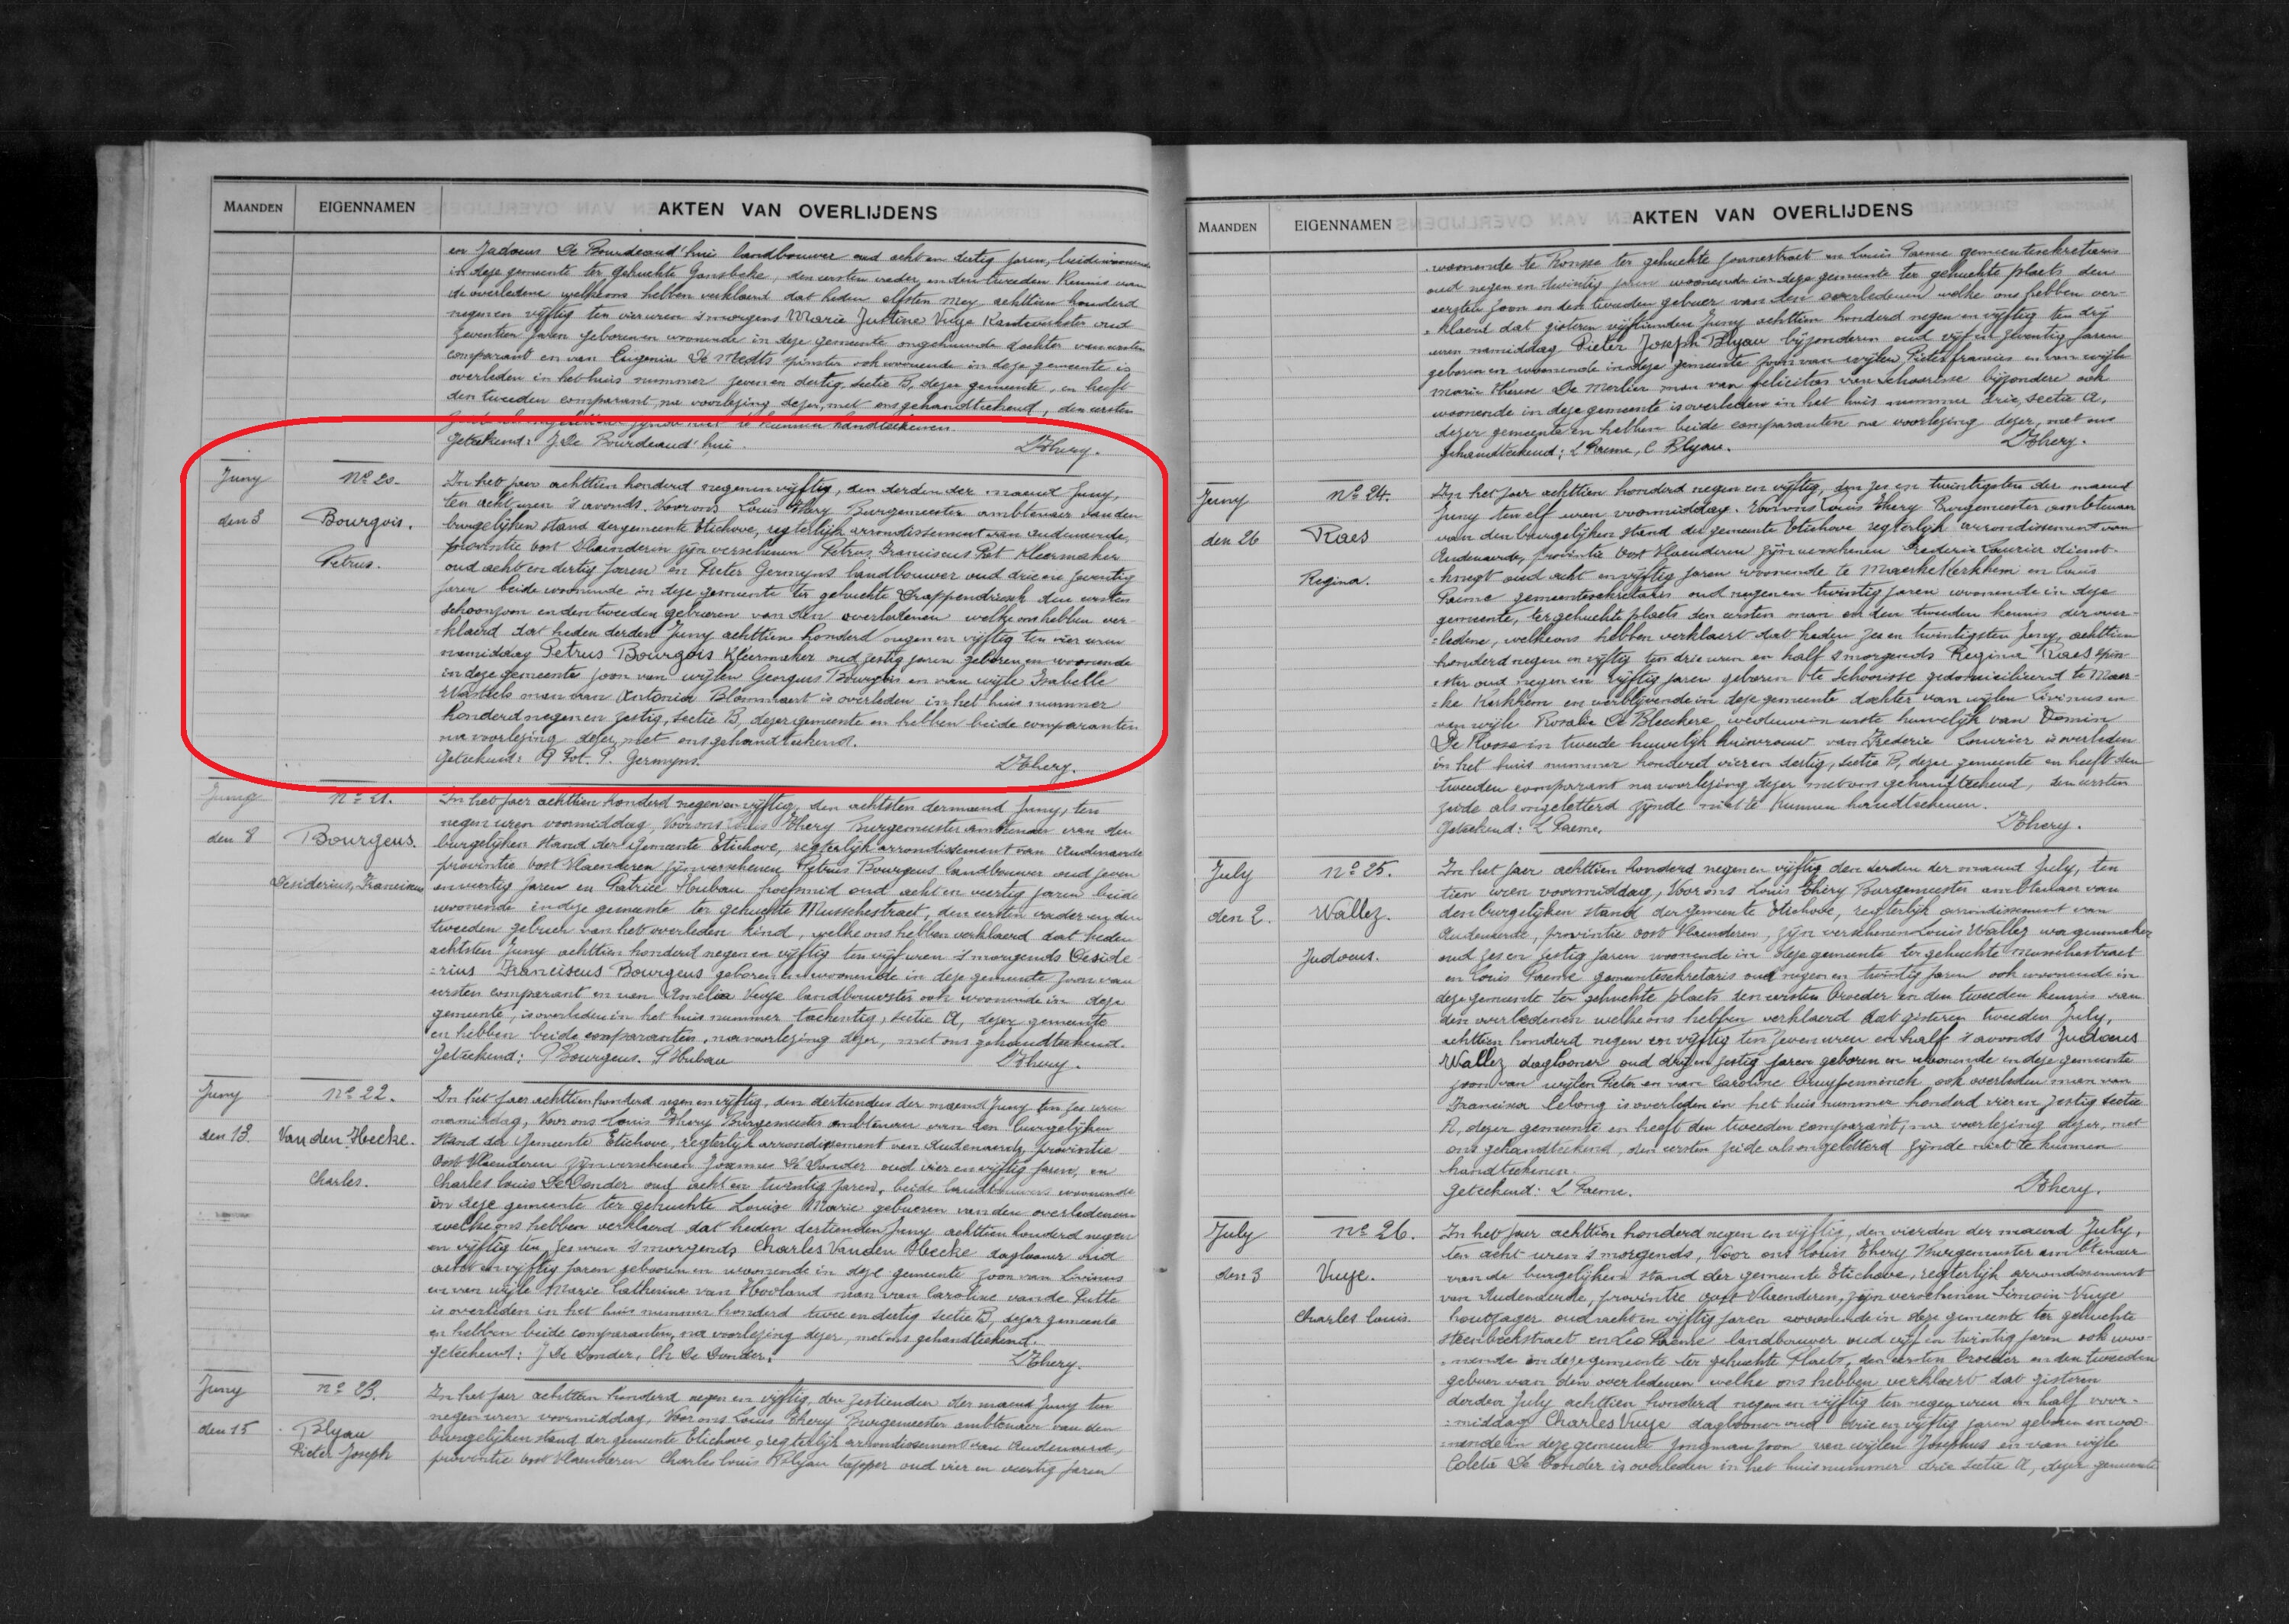 MAANDEN EIGENNAMEN AKTEN VAN OVERLIJDENS
en Judocus De Bourdeaud'hui landbouwer oud acht en dertig jaren, beide woonende
in deze gemeente ter gehuchte Gansbeke, den eersten vader, en den tweeden Kennis van
de overledene welke ons hebben verklaerd dat heden elfsten Mey achttien honderd
negen en vijftig ten vier uren 's morgens Marie Justine Vuye Kantwerkster oud
zeventien jaren geboren en woonende in deze gemeente ongehuwde dochter van eersten
comparant en van Eugenia De Medts spinster ook woonende in deze gemeente is
overleden in het huis nummer zeven en dertig, sectie B, dezer gemeente, en heeft
den tweeden comparant, na voorlezing dezer, met ons gehandteekend, den eersten
zynde niet te kunnen handteekenen.
Geteekend: J. De Bourdeaud'hui. L Thery.
Juny Nº 20. In het jaer achttien honderd negen en vijftig, den derden der maend Juny,
ten acht uren 's avonds. Voor ons Louis Thery Burgemeester ambtenaer van den
den 3 Bourgois. burgelijken stand der gemeente Etichove, regterlijk arrondissement van Audenaerde,
provintie oost Vlaenderen zijn verschenen Petrus Franciscus Pot kleermaker
Petrus. oud acht en dertig jaren en Pieter Germyns landbouwer oud drie en zeventig
jaren beide woonende in deze gemeente ter gehuchte Drappendriesch den eersten
schoonzoon en den tweeden gebueren van den overledenen welke ons hebben ver-
-klaerd dat heden derden Juny achttien honderd negen en vijftig ten vier uren
namiddag Petrus Bourgois Kleermaker oud zestig jaren geboren en woonende
in deze gemeente zoon van wijlen Georgius Bourgois en van wijle Isabelle
Wattels man van Antonia Blommaert is overleden in het huis nummer
honderd negen en zestig, sectie B, dezer gemeente en hebben beide comparanten
na voorlezing dezer, met ons gehandteekend.
Geteekend: P Pot. P. Germyns. L Thery.
Juny Nº 21. In het jaer achttien honderd negen en vijftig, den achtsten der maend Juny, ten
negen uren voormiddag, Voor ons Louis Thery Burgemeester ambtenaer van den
den 8 Bourgeus. burgelijken stand der Gemeente Etichove, regterlijk arrondissement van Audenaerde
provintie oost Vlaenderen zijn verschenen Petrus Bourgeus landbouwer oud zeven
Desiderius, Franciscus en veertig jaren en Patrice Hubau hoefsmid oud acht en veertig jaren beide
woonende in deze gemeente ter gehuchte Musschestraet, den eersten vader en den
tweeden gebuer van het overleden kind, welke ons hebben verklaerd dat heden
achtsten Juny achttien honderd negen en vijftig ten vijf uren 's morgends Deside-
-rius Franciscus Bourgeus geboren en woonende in deze gemeente zoon van
eersten comparant en van Amelia Vuye landbouwster ook woonende in deze
gemeente, is overleden in het huis nummer tachentig, sectie A, dezer gemeente
en hebben beide comparanten, na voorlezing dezer, met ons gehandteekend.
Geteekend: P Bourgeus. P Hubau L Thery.
Juny Nº 22. In het jaer achttien honderd negen en vijftig, den dertienden der maend Juny ten zes uren
namiddag, Voor ons Louis Thery Burgemeester ambtenaer van den burgelijken
den 13. Van den Hecke. stand der Gemeente Etichove, regterlijk arrondissement van Audenaerde, provintie
Oost Vlaenderen zijn verschenen Joannes De Donder oud vier en vijftig jaren, en
Charles. Charles Louis De Donder oud acht en twintig jaren, beide landbouwers woonende
in deze gemeente ter gehuchte Louise Marie gebueren van den overledenen
welke ons hebben verklaerd dat heden dertienden Juny achttien honderd negen
en vijftig ten zes uren 's morgends Charles Van den Hecke daglooner oud
acht en vijftig jaren geboren en woonende in deze gemeente zoon van Livinus
en van wijle Marie Catherine van Hooland man van Caroline van de Putte
is overleden in het huis nummer honderd twee en dertig sectie B, dezer gemeente
en hebben beide comparanten, na voorlezing dezer, met ons gehandteekend.
Geteekend: J De Donder, Ch De Donder. L Thery.
Juny Nº 23. In het jaer achttien honderd negen en vijftig, den zestienden der maend Juny ten
negen uren voormiddag, Voor ons Louis Thery Burgemeester ambtenaer van den
den 15 Blyau burgelijken stand der gemeente Etichove regterlijk arrondissement van Audenaerde,
Pieter Joseph provintie oost Vlaenderen Charles Louis Blyau tapper oud vier en veertig jaren
MAANDEN EIGENNAMEN AKTEN VAN OVERLIJDENS
woonende te Ronsse ter gehuchte Joanestraet en Louis Paeme gemeentesekretaris
oud negen en twintig jaren woonende in deze gemeente ter gehuchte plaets den
eersten zoon en den tweeden gebuer van den overledenen welke ons hebben ver-
-klaerd dat gisteren vijftienden Juny achttien honderd negen en vijftig ten drij
uren namiddag Pieter Joseph Blyau bijzonderen oud vijf en zeventig jaren
geboren en woonende in deze gemeente zoon van wijlen Pieter francies en van wijle
marie Therese De Merlier man van felicitas van schoorisse bijzondere ook
woonende in deze gemeente is overleden in het huis nummer drie, sectie A,
dezer gemeente en hebben beide comparanten na voorlezing dezer, met ons
gehandteekend; L Paeme, C Blyau. L Thery.
Juny Nº 24. In het jaer achttien honderd negen en vijftig, den zes en twintigsten der maend
Juny ten elf uren voormiddag. Voor ons Louis Thery Burgemeester ambtenaer
den 26 Raes van den burgelijken stand der gemeente Etichove regterlijk arrondissement van
Audenaerde, provintie Oost Vlaenderen zijn verschenen Frederic Laurier dienst-
Regina. -knegt oud acht en vijftig jaren woonende te Maerke Kerkhem en Louis
Paeme gemeentesekretaris oud negen en twintig jaren woonende in deze
gemeente, ter gehuchte plaets den eersten man en den tweeden kennis der over-
-ledene, welke ons hebben verklaert dat heden zes en twintigsten Juny, achttien
honderd negen en vijftig ten drie uren en half 's morgends Regina Raes spin-
-ster oud negen en vijftig jaren geboren te Schoorisse gedomicilieerd te Maer-
-ke Kerkhem en verblijvende in deze gemeente dochter van wijlen Livinus en
van wijle Rosalie De Bleeckere, weduwe in eerste huwelijk van Domin
De Roose in tweede huwelijk huisvrouw van Frederic Laurier is overleden
in het huis nummer honderd vier en dertig, sectie B, dezer gemeente en heeft den
tweeden comparant na voorlezing dezer met ons gehandteekend, den eersten
zeide als ongeletterd zijnde niet te kunnen handteekenen.
Geteekend: L Paeme. L Thery.
July Nº 25. In het jaer achttien honderd negen en vijftig den derden der maend July, ten
tien uren voormiddag, Voor ons Louis Thery Burgemeester ambtenaer van
den 2. Wallez. den burgelijken stand der gemeente Etichove, regterlijk arrondissement van
Audenaerde, provintie Oost Vlaenderen, zijn verschenen Louis Wallez wagenmaker
Judocus. oud zes en zestig jaren woonende in deze gemeente ter gehuchte musschestraet
en Louis Paeme gemeentesekretaris oud negen en twintig jaren ook woonende in
deze gemeente ter gehuchte plaets den eersten broeder en den tweeden kennis van
den overledenen welke ons hebben verklaerd dat gisteren tweeden July,
achttien honderd negen en vijftig ten zeven uren en half 's avonds Judocus
Wallez daglooner oud drij en zestig jaren geboren en woonende in deze gemeente
zoon van wijlen Pieter en van Caroline Cruypenninck ook overleden man van
Francisca Lelong is overleden in het huis nummer honderd vier en zestig sectie
A, dezer gemeente en heeft den tweeden comparant, na voorlezing dezer, met
ons gehandteekend, den eersten zeide als ongeletterd zijnde niet te kunnen
handteekenen.
Geteekend: L Paeme. L Thery.
July Nº 26. In het jaer achttien honderd negen en vijftig, den vierden der maend July,
ten acht uren 's morgends, Voor ons Louis Thery Burgemeester ambtenaer
den 3 Vuye. van de burgelijken stand der gemeente Etichove, regterlijk arrondissement
van Audenaerde, provintie Oost Vlaenderen, zijn verschenen Simoin Vuye
Charles Louis. houtzager oud acht en vijftig jaren woonende in deze gemeente ter gehuchte
steenbeekstraet en Léo Paeme landbouwer oud vijf en twintig jaren ook woo-
-nende in deze gemeente ter gehuchte Plaets, den eersten broeder en den tweeden
gebuer van den overledenen welke ons hebben verklaert dat gisteren
derden July achttien honderd negen en vijftig ten negen uren en half voor-
-middag Charles Vuye daglooner oud drie en vijftig jaren geboren en woo-
-nende in deze gemeente jongman zoon van wijlen Josephus en van wijle
Coleta De Donder is overleden in het huisnummer drie sectie A, dezer gemeente